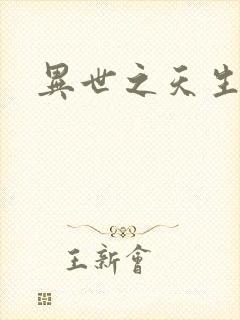 異世之天生
王新會